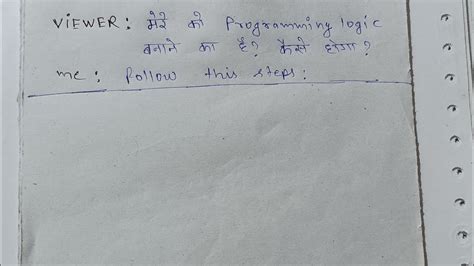 VIEWER: मेरे को Programming logic
बनाने का है? कैसे होगा?
me: Follow this steps: